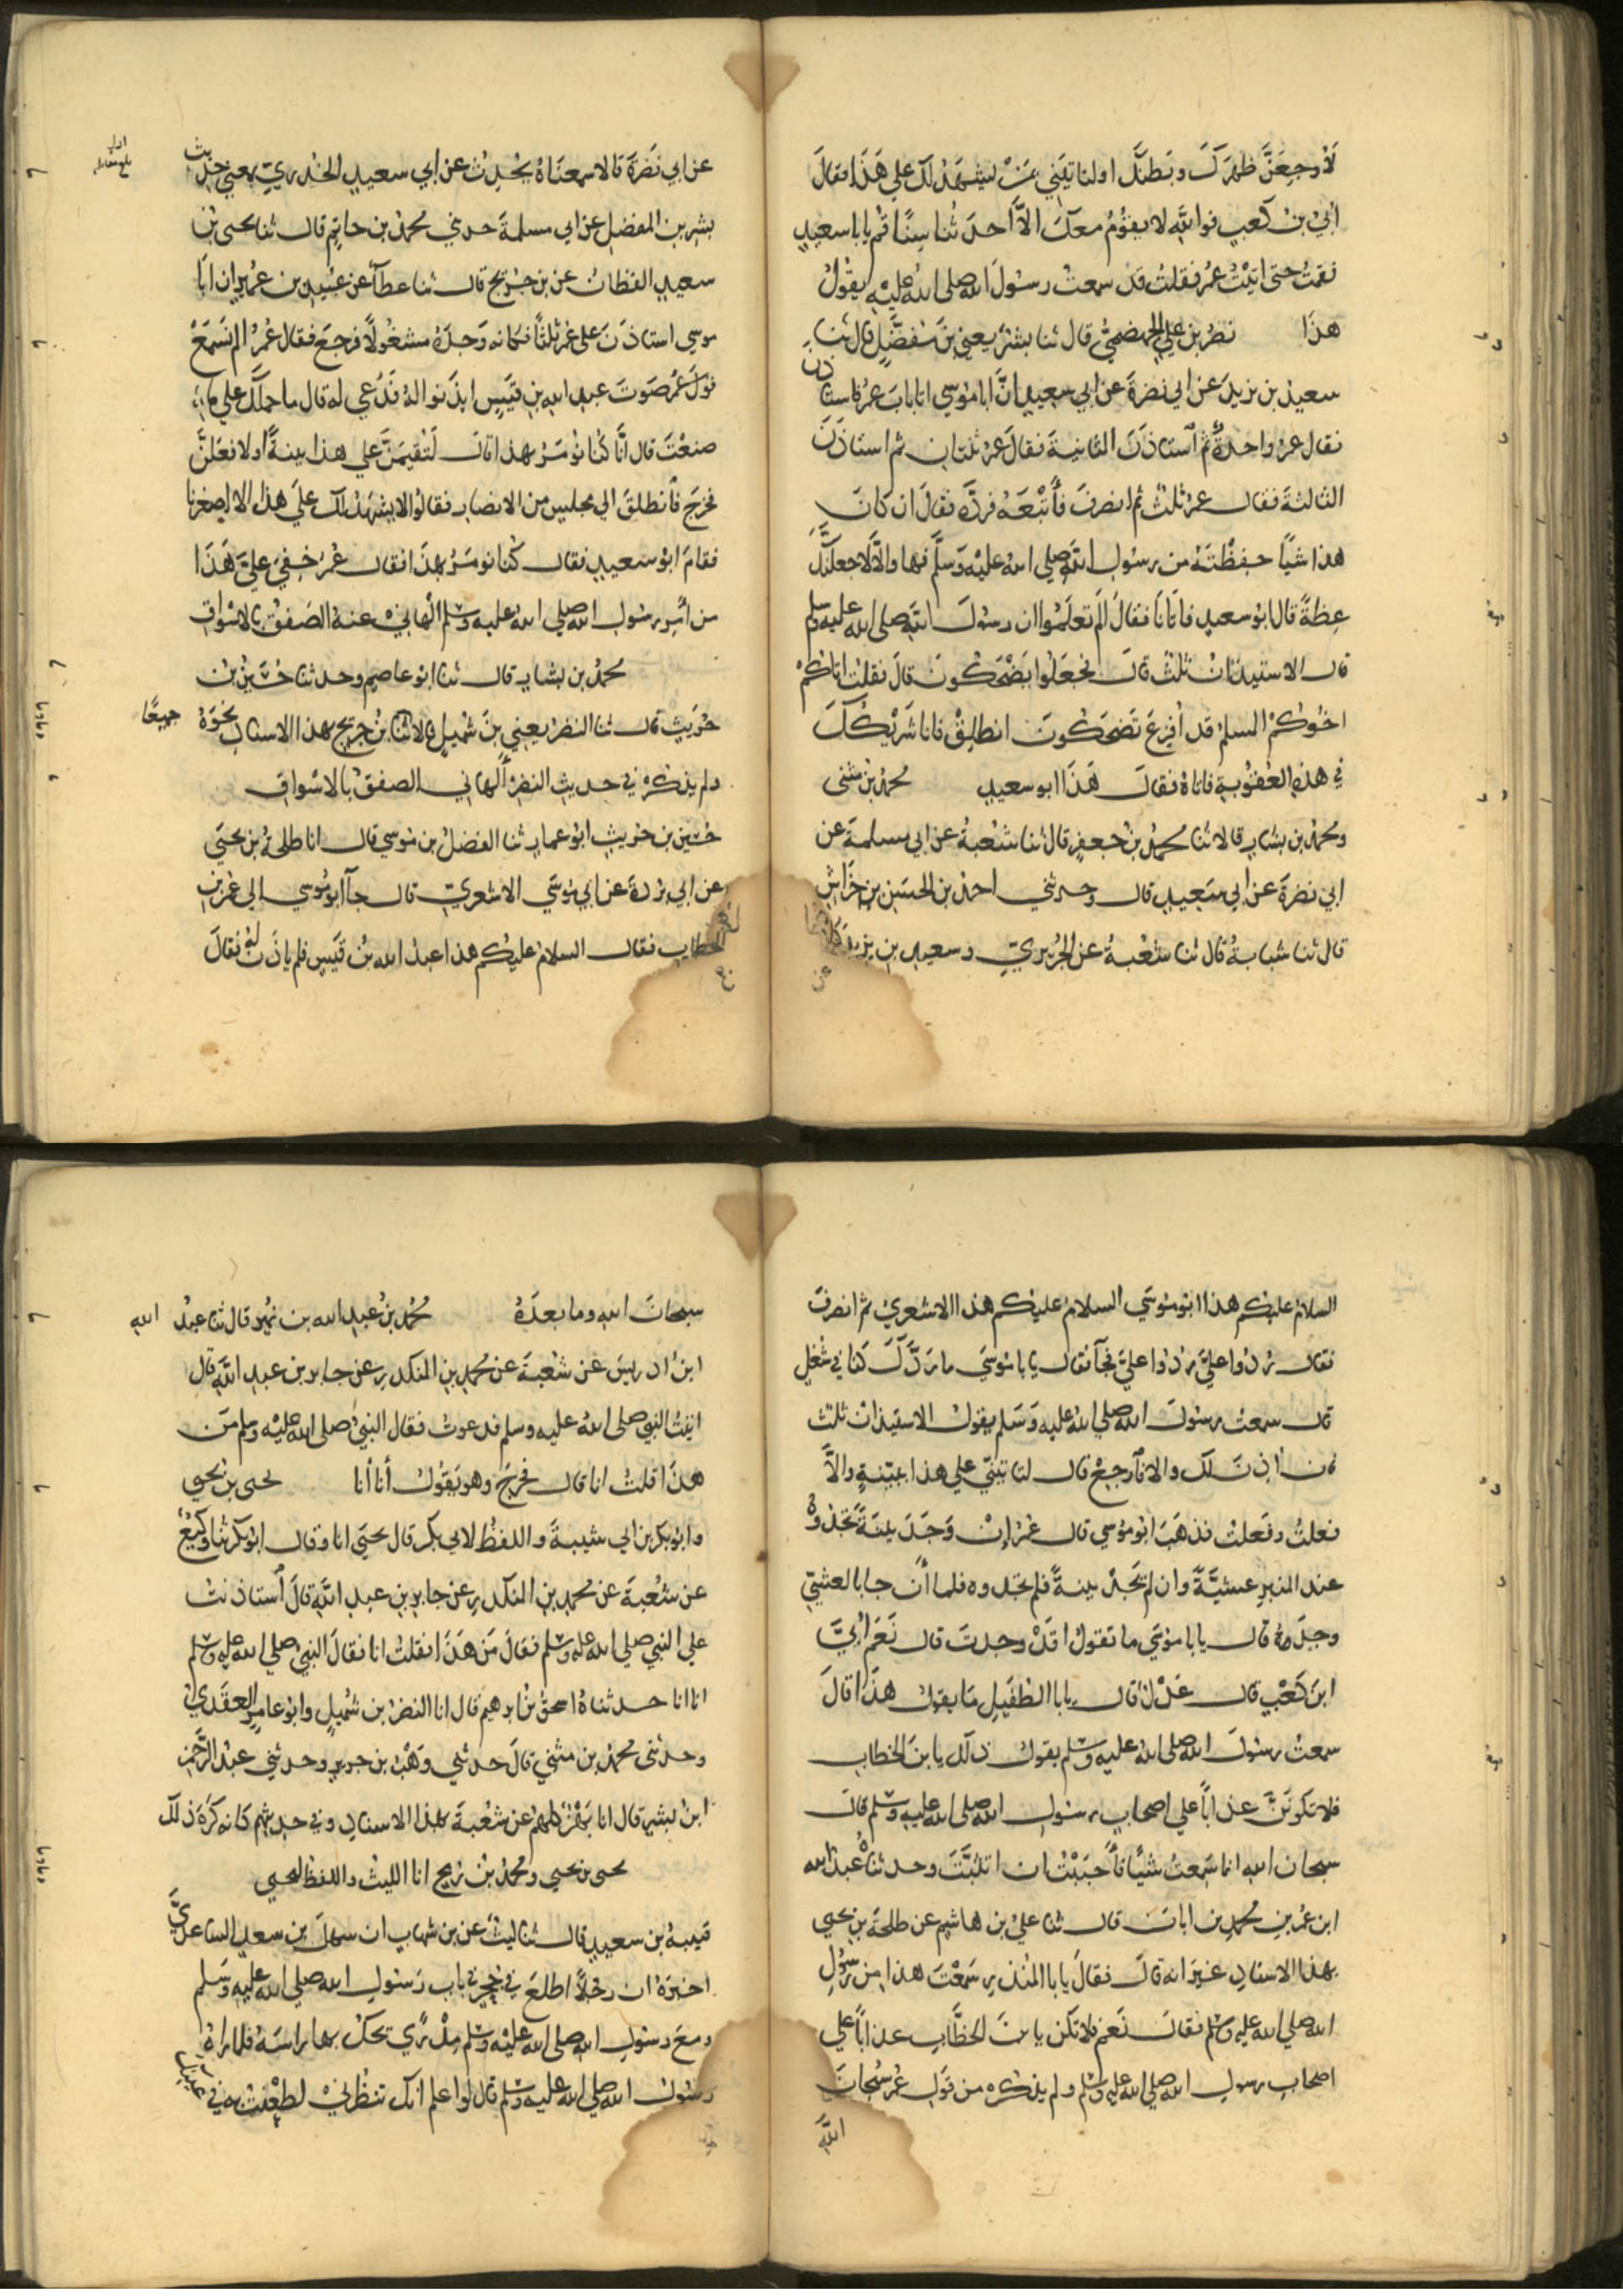 لأوجعن ظهرك وبطنك او لتاتيني بمن ليشهد لك علي هذا فقال
ابي بن كعب فوالله لا يقوم معك الا احدثنا سنا قم يابا سعيد
فقمت حتى اتيت عمر فقلت قد سمعت رسول الله صلى الله عليه يقول
هذا نصر بن علي الجهضمي قال ثنا بشر يعني بن مفضل قال ثنا
سعيد بن يزيد عن ابي نضرة عن ابي سعيد ان ابا موسي اتا باب عمر فاستاذن
فقال عمر واحدة ثم استاذن الثانية فقال عمر ثنتان ثم استاذن
الثالثة فقال عمر ثلث ثم انصرف فأتبعه فرده فقال ان كان
هذا شيا حفظته من رسول الله صلي الله عليه وسلم فها والا لاجعلنك
عظة قال ابو سعيد فاتانا فقال الم تعلموا ان رسول الله صلى الله عليه وسلم
قال الاستيذان ثلث قال فجعلوا يضحكون قال فقلت اتاكم
اخوكم المسلم قد افزع تضحكون انطلق فانا شريكك
في هذه العقوبة فاتاه فقال هذا ابو سعيد محمد بن مثنى
ومحمد بن بشار قالا ثنا محمد بن جعفر قال ثنا شعبة عن ابي مسلمة عن
ابي نضرة عن ابي سعيد قال وحدثني احمد بن الحسين بن خراش
قال ثنا شبابة قال ثنا شعبة عن الجريري وسعيد بن يزيد
عن
عن ابي نضرة قالا سمعناه يحدث عن ابي سعيد الخدري بمعني حديث
بشر بن المفضل عن ابي مسلمة حدثني محمد بن حاتم قال ثنا يحيى بن
سعيد القطان عن بن جريج قال ثنا عطآ عن عبيد بن عمير ان ابا
موسي استاذن على عمر ثلثا فكانه وجده مشغولا فرجع فقال عمر الم تسمع
صوت عبد الله بن قيس ايذنوا له فدعي له قال ما حملك علي ما
صنعت قال انا كنا نومر بهذا قال لتقيمن علي هذا بينة او لافعلن
فخرج فانطلق الي مجلس من الانصار فقالوا لا يشهد لك علي هذا الا اصغرنا
فقام ابو سعيد فقال كنا نومر بهذا فقال عمر خفي علي هذا
من أمر رسول الله صلي الله عليه وسلم الهاني عنه الصفق بالاسواق
محمد بن بشار قال ثنا ابو عاصم وحدثنا حسين بن
حريث قال ثنا النضر يعني بن شميل قالا ثنا بن جريج بهذا الاسناد نحوه جميعا
ولم يذكر في حديث النضر ألهاني الصفق بالاسواق
حسين بن حريث ابو عمار ثنا الفضل بن موسي قال انا طلحة بن يحيى
عن ابي بردة عن ابي موسي الاشعري قال جآ ابو موسي الي عمر بن
الخطاب فقال السلام عليكم هذا عبد الله بن قيس فلم ياذن له فقال
السلام عليكم هذا ابو موسي السلام عليكم هذا الاشعري ثم انصرف
فقال ردوا علي ردوا علي فجآ فقال يابا موسي ما ردك كنا في شغل
قال سمعت رسول الله صلي الله عليه وسلم يقول الاستيذان ثلث
فان اذن لك والا فارجع قال لتاتيني علي هذا ببينة والا
فعلت وفعلت فذهب ابو موسي قال عمر إن وجد بينة تجدوه
عند المنبر عشية وان لم يجد بينة فلم تجدوه فلما أن جا بالعشي
وجدوه قال يابا موسي ما تقول اقد وجدت قال نعم ابي
ابن كعب قال عدل قال يابا الطفيل ما يقول هذا قال
سمعت رسول الله صلى الله عليه وسلم يقول ذلك يا بن الخطاب
فلا تكونن عذابا علي اصحاب رسول الله صلي الله عليه وسلم قال
سبحان الله انما سمعت شيئا فأحببت ان اتثبت وحدثناه عبد الله
ابن عمر بن محمد بن ابان قال ثنا علي بن هاشم عن طلحة بن يحيي
بهذا الاسناد غير انه قال فقال يابا المنذر سمعت هذا من رسول
الله صلي الله عليه وسلم فقال نعم فلا تكن يا بن الخطاب عذابا علي
اصحاب رسول الله صلي الله عليه وسلم ولم يذكره من قول عمر سبحان
الله
سبحان الله وما بعده محمد بن عبد الله بن نمير قال ثنا عبد الله
ابن ادريس عن شعبة عن محمد بن المنكدر عن جابر بن عبد الله قال
اتيت النبي صلى الله عليه وسلم فدعوت فقال النبي صلى الله عليه وسلم من
هذا قلت انا قال فخرج وهو يقول أنا أنا يحيى بن يحيي
وابو بكر بن ابي شيبة واللفظ لابي بكر قال يحيى انا وقال ابو بكر ثنا وكيع
عن شعبة عن محمد بن المنكدر عن جابر بن عبد الله قال استاذنت
علي النبي صلي الله عليه وسلم فقال من هذا فقلت انا فقال النبي صلي الله عليه وسلم
انا انا حدثناه اسحق بن ابرهيم قال انا النضر بن شميل وابو عامر العقدي
وحدثنى محمد بن مثنى قال حدثني وهب بن جرير وحدثني عبد الرحمن
ابن بشر قال انا بهز كلهم عن شعبة بهذا الاسناد وفي حديثهم كانه كره ذلك
يحيى بن يحيي ومحمد بن رمح انا الليث واللفظ ليحيي
قتيبة بن سعيد قال ثنا ليث عن بن شهاب ان سهل بن سعد الساعدي
اخبره ان رجلا اطلع في جحر في باب رسول الله صلي الله عليه وسلم
ومع رسول الله صلى الله عليه وسلم مدرى يحك بها راسه فلما راه
رسول الله صلي الله عليه وسلم قال لو اعلم انك تنظرني لطعنت به في عينيك